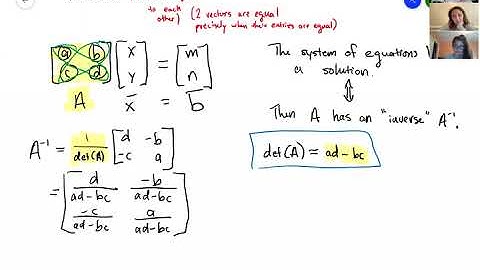 to each
other) (2 vectors are equal
precisely when their entries are equal)
[a b c d] [x y] = [m n]
A x̄ = b̄
The system of equations
a solution.
↕
Then A has an "inverse" A⁻¹.
A⁻¹ = 1/det(A) [d -b -c a]
det(A) = ad-bc
= [d/ad-bc -b/ad-bc -c/ad-bc a/ad-bc]